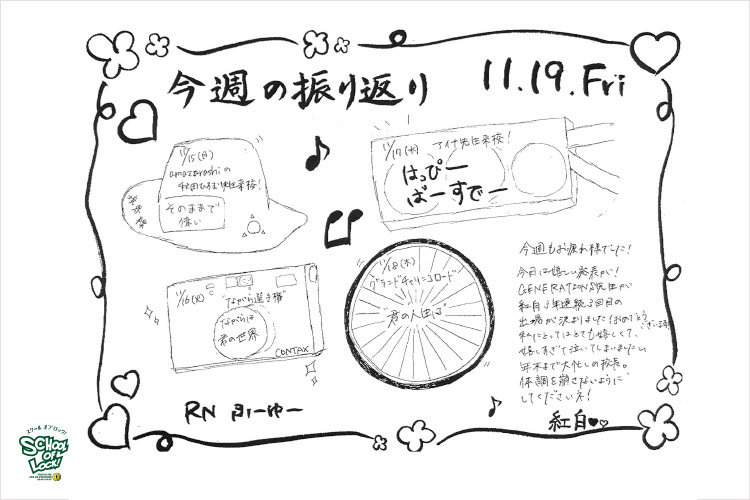 今週の振り返り
11.19.Fri
11/15(月)
amazarashiの
秋田ひろむ先生来校!
そのままで
偉い
11/17(水) アイナ先生来校!
はっぴー
ばーすでー
11/16(火)
"ながら選手権"
ながらは
君の世界
CONTAX
11/18(木)
グランドチャリンコロード
"君の人生は"
今週もお疲れ様でした!
今日は嬉しい発表が!
GENERATIONS先生が
紅白3年連続3回目の
出場が決まりました!おめでとうございます
私にとってはとても嬉しくて、
嬉しすぎて泣いてしまいました
年末まで大忙しの校長。
体調を崩さないように
してくださいネ!
紅白♥♡
RN
スクール オブ ロック!
SCHOOL
OF
LOCK!